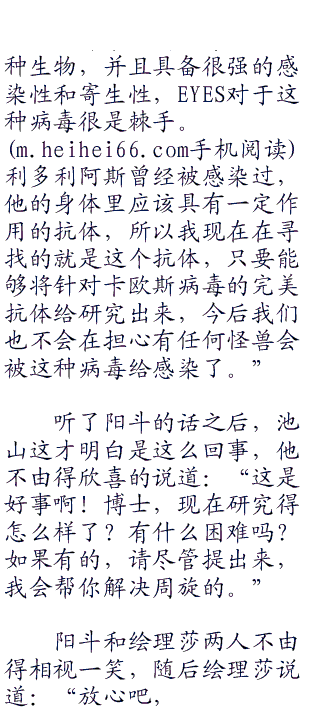 种生物，并且具备很强的感
染性和寄生性，EYES对于这
种病毒很是棘手。
(m.heihei66.com手机阅读)
利多利阿斯曾经被感染过，
他的身体里应该具有一定作
用的抗体，所以我现在在寻
找的就是这个抗体，只要能
够将针对卡欧斯病毒的完美
抗体给研究出来，今后我们
也不会在担心有任何怪兽会
被这种病毒给感染了。”
听了阳斗的话之后，池
山这才明白是这么回事，他
不由得欣喜的说道：“这是
好事啊！博士，现在研究得
怎么样了？有什么困难吗？
如果有的，请尽管提出来，
我会帮你解决周旋的。”
阳斗和绘理莎两人不由
得相视一笑，随后绘理莎说
道：“放心吧，